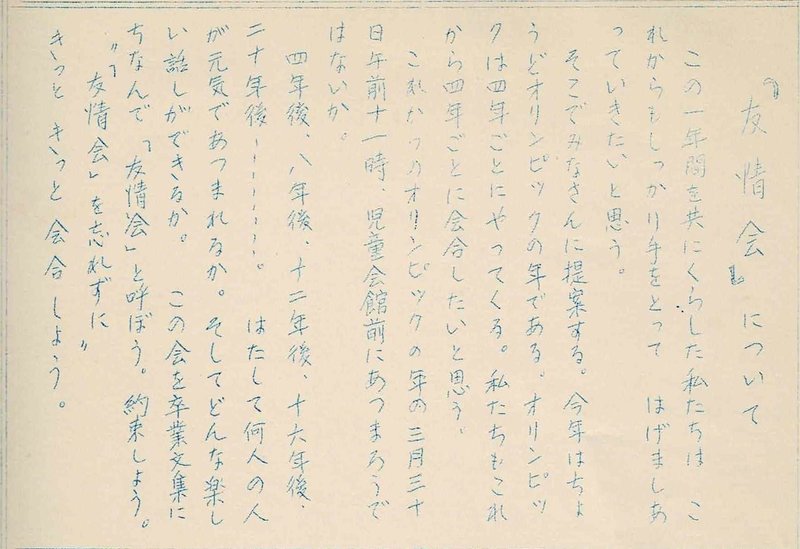 『友情会』について
この一年間を共にくらした私たちは　こ
れからもしっかり手をとって　はげましあ
っていきたいと思う。
そこでみなさんに提案する。今年はちょ
うどオリンピックの年である。オリンピッ
クは四年ごとにやってくる。私たちもこれ
から四年ごとに会合したいと思う。
これからのオリンピックの年の三月三十
日午前十一時、児童会館前にあつまろうで
はないか。
四年後、八年後、十二年後、十六年後、
二十年後………。　はたして何人の人
が元気であつまれるか。そしてどんな楽し
い話しができるか。　この会を卒業文集に
ちなんで「友情会」と呼ぼう。約束しよう。
“「友情会」を忘れずに”
きっと　きっと　会合しよう。